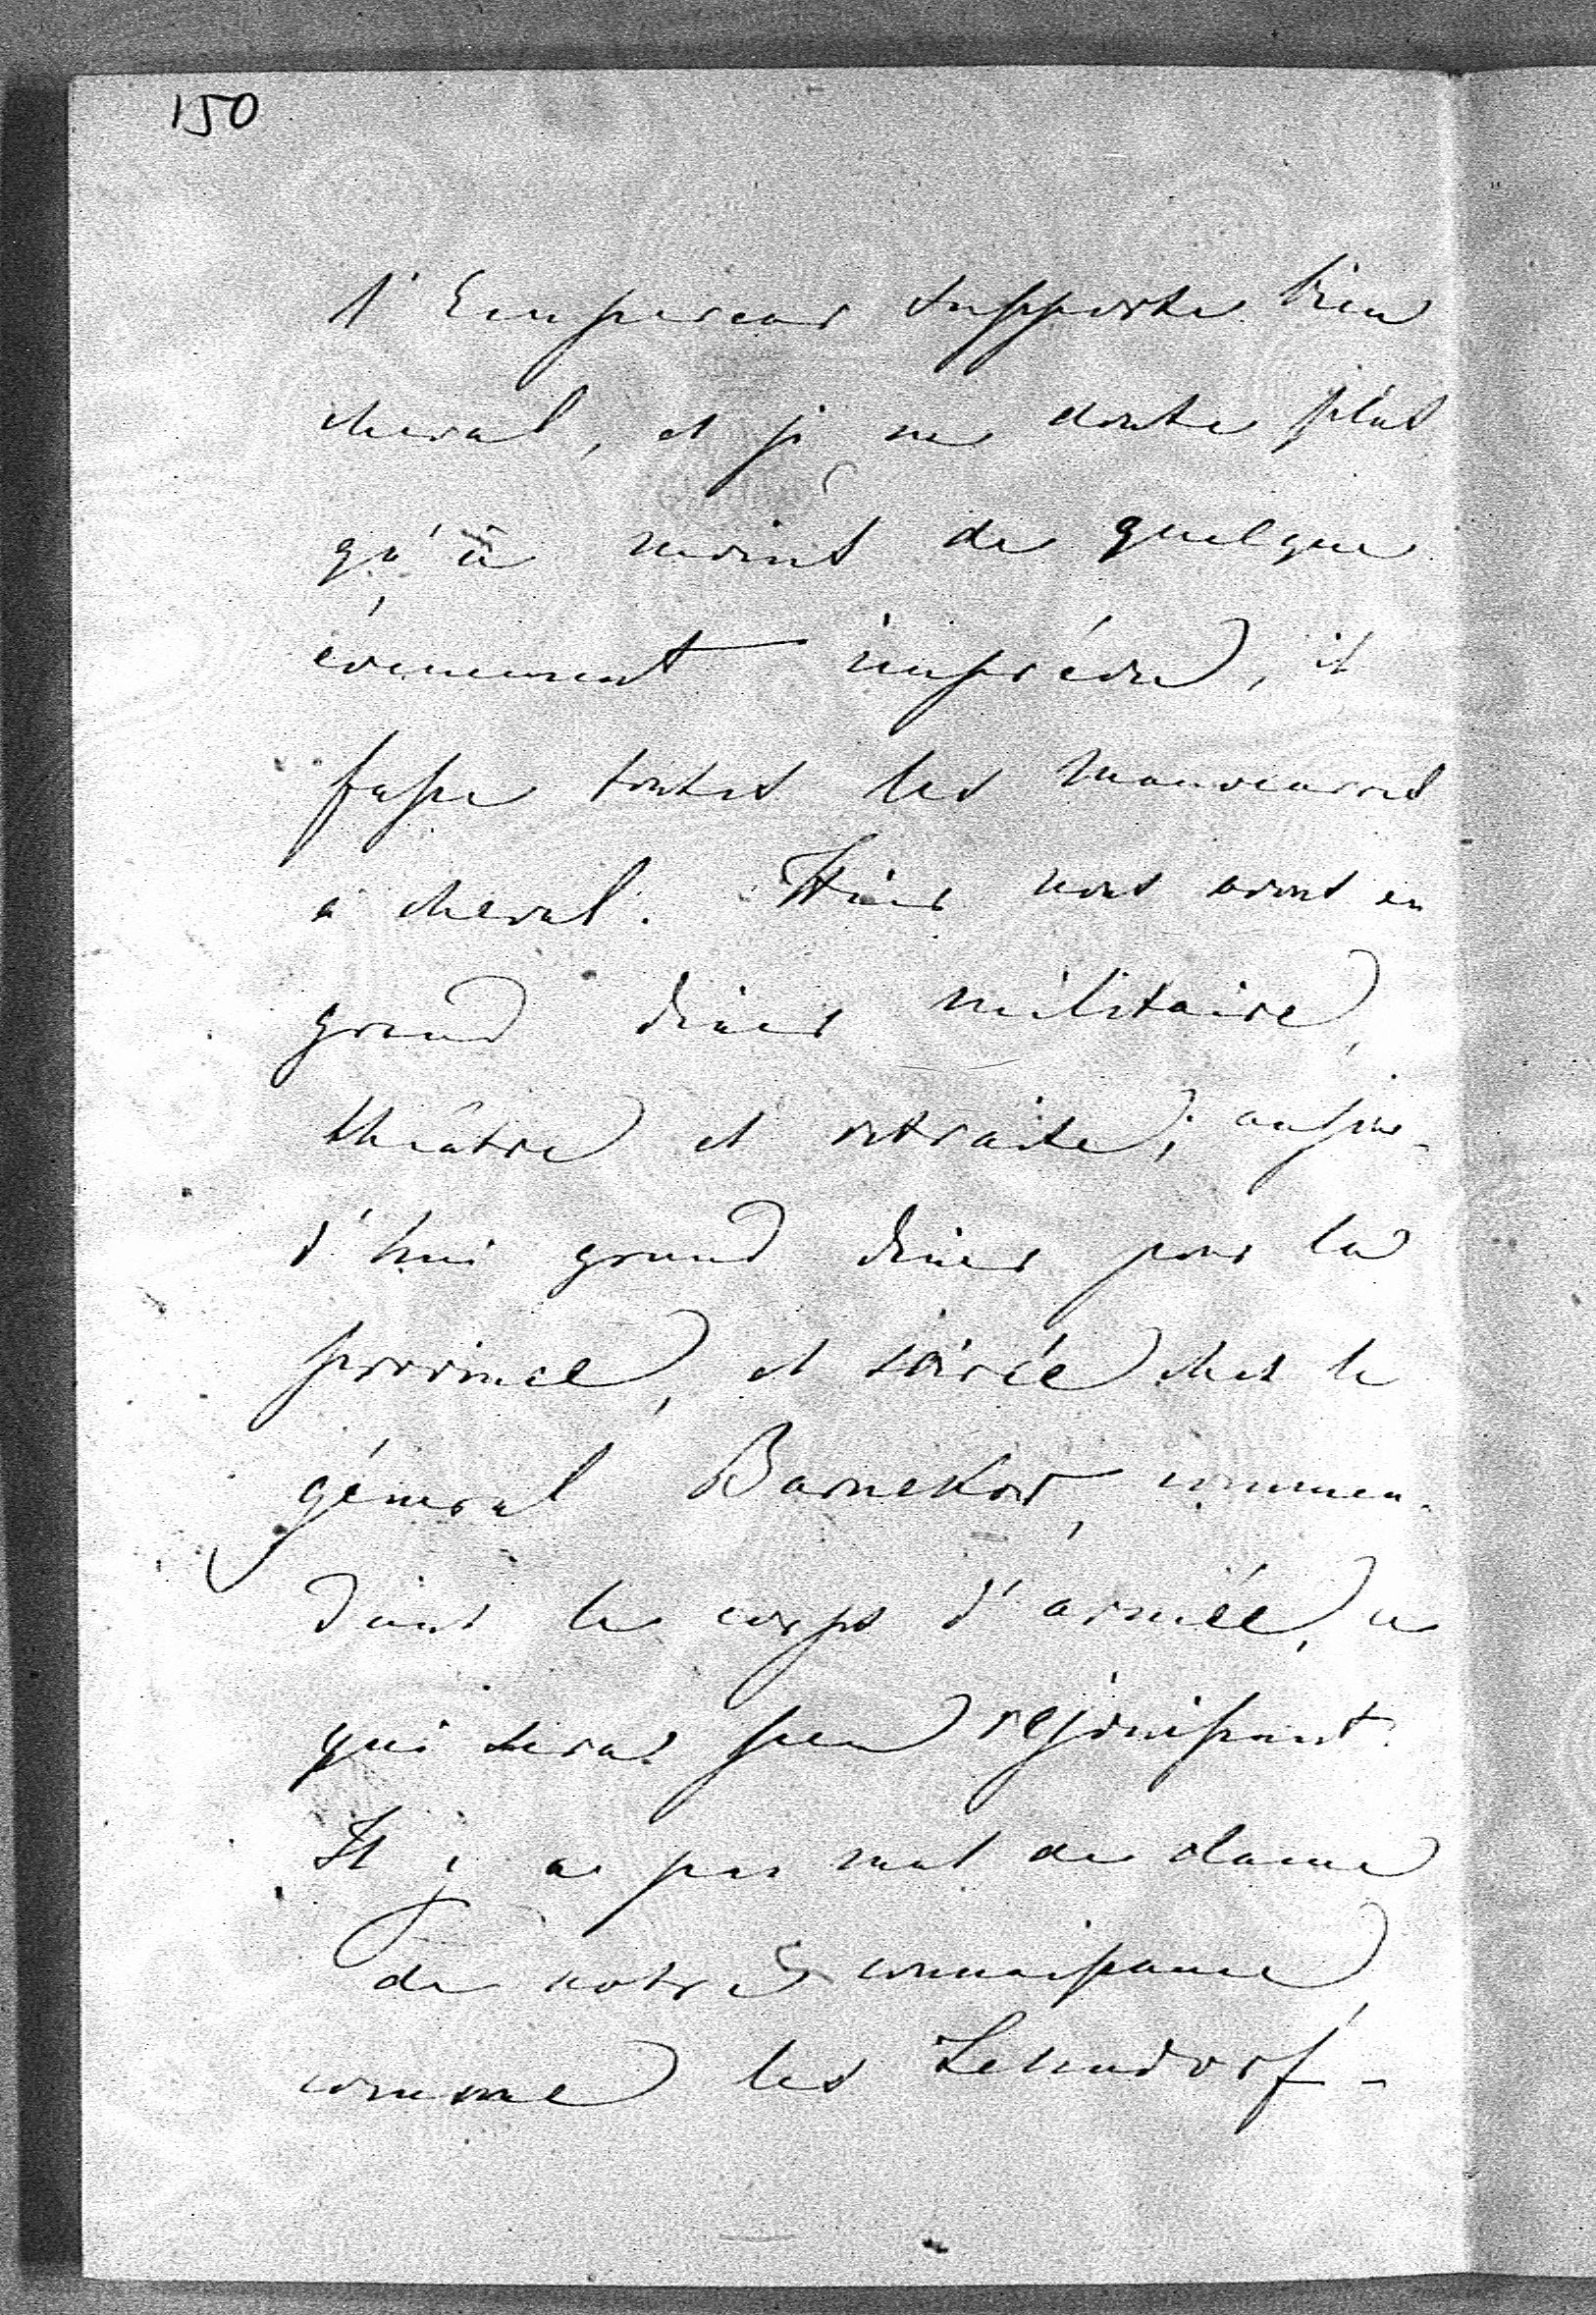 150
l'Empereur supporte bien
cheval, et je ne doute plus
qu'à moins de quelque
évenement imprévu, il
fasse toutes les manoeuvres
à cheval. Hier nous avons eu
grand diner militaire,
théâtre et retraite; aujour-
d'hui grand diner pour la
province, et soirée chez le
général Barnekow, comman-
dant le corps d'armée, ce
qui sera peu rejouissant.
Il y a pas mal de dames
de notre connaissance,
comme les Lehndorf-